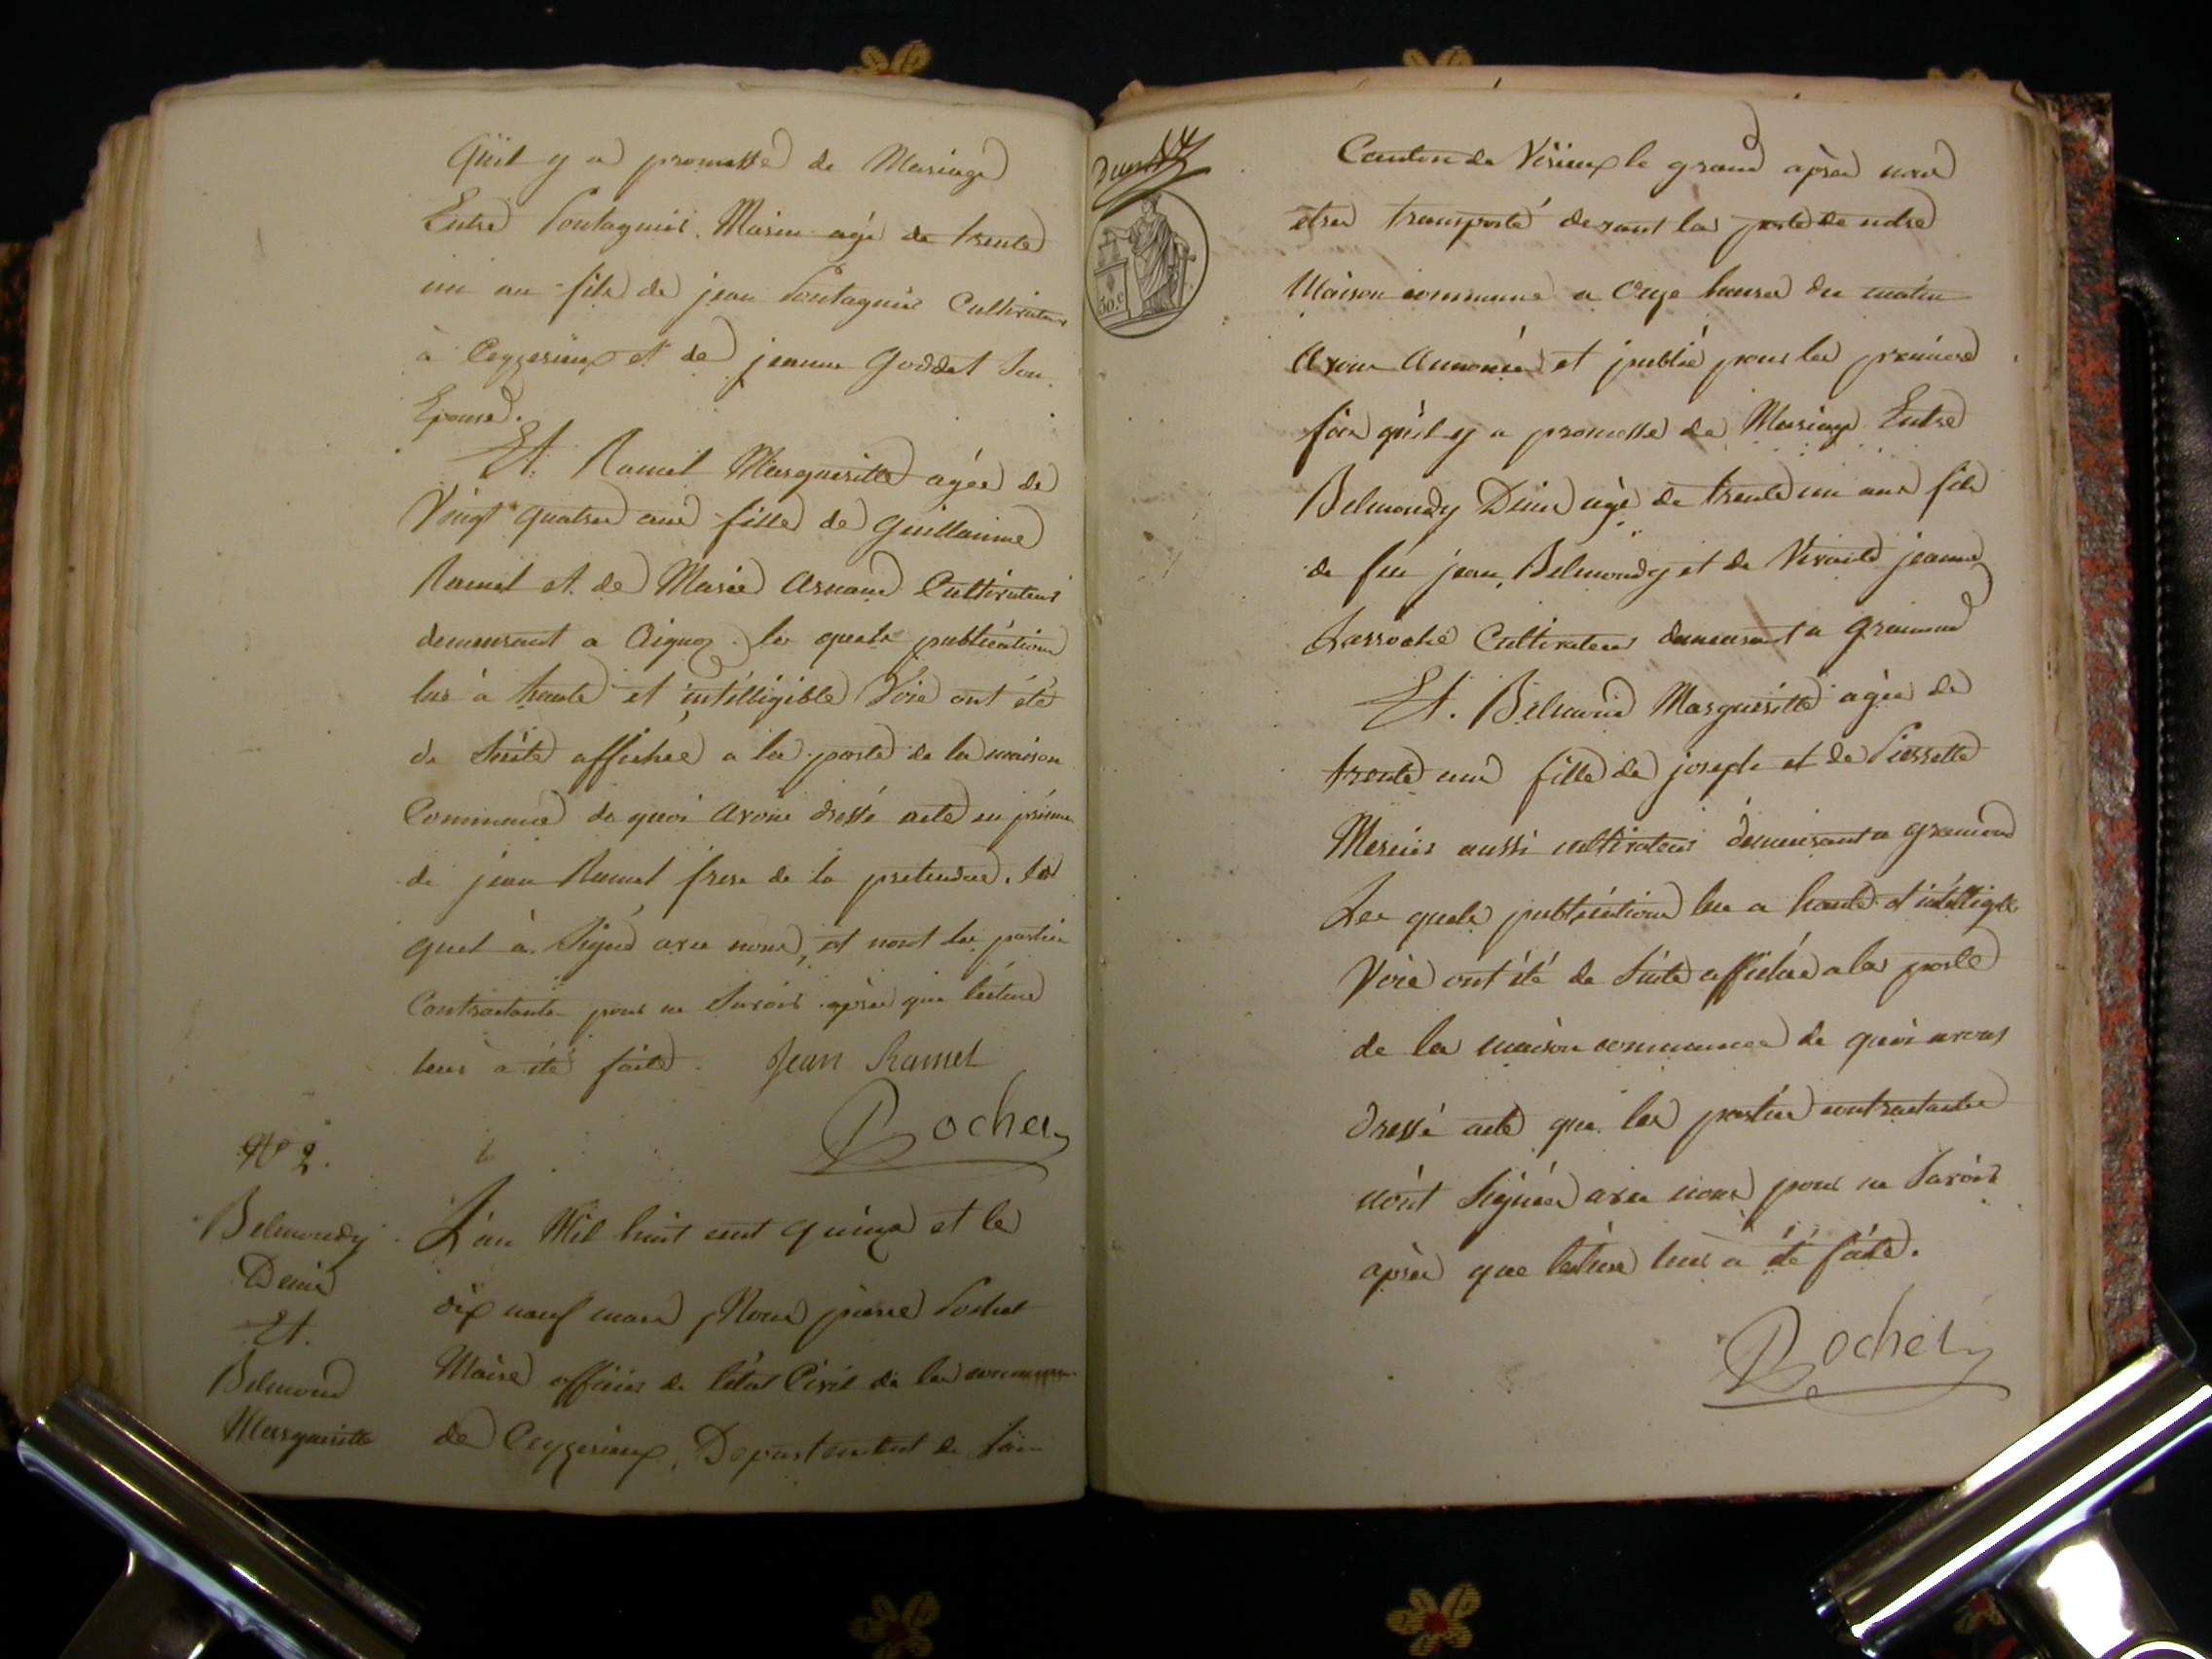 Qu'il y a promesse de Mariage
Entre Pontagnier Marin agé de trente
un an fils de jean Pontagnier Cultivateur
à Ceyzerieux et de jeanne Goddet Son
Epouse.
Et. Ramel Margueritte agée de
Vingt quatre ans fille de Guillaume
Ramel et de Marie Arnaud Cultivateurs
demeurant a les quels publications
lus à haute et intélligible Voie ont été
de Suite affichée a la porte de la maison
Commune de quoi avons dressé acte en présence
de jean Ramel frere de la pretendue. le
quel à Signé avec nous, et nont les parties
Contractante pour ne Savoir après que lécture
leur a été faite. Jean Ramel
Rochet
N° 2.
Belmondy
Denis
Et.
Belmond
Margueritte
L'an Mil huit cent quinze et le
dix neuf mars, Nous pierre Rochet
Maire officier de létat Civil de la commune
de Ceyzerieux, Departement de l'ain
50.c
Canton de Virieux le grand après nous
etre transporté devant la porte de notre
Maison commune a Onze heures du matin
Avons Annoncée et publié pour la premiere
fois qu'il y a promesse de Mariage Entre
Belmondy Denis agé de trente un ans fils
de feu jean Belmondy et de jeanne
Cultivateur demeurant a
Et. Belmond Marguerisitte agée de
trente ans fille de joseph et de Pierrette
Mercier aussi cultivateur demeurant a
Les quels publications lue a haute et intélligible
Voie ont été de Suite affichée a la porte
de la maison commune de quoi avons
dressé acte que les parties contractantes
nont Signée avec nous pour ne Savoir
après que lecture leur a été faite.
Rochet